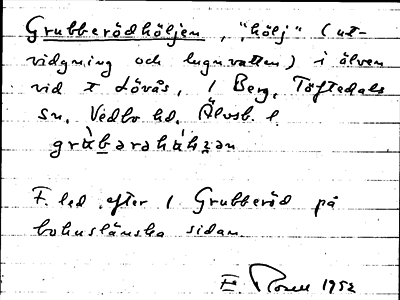 Grubberödhöljen, "hölj" (ut-
vidgning och lugnvatten) i älven
vid t Lövås, / Berg, Töftedals
sn. Vedbo hd. Älvsb. l.
gràbərəhàhzən
F. led efter / Grubberöd på
bohuslänska sidan.
E. 1952